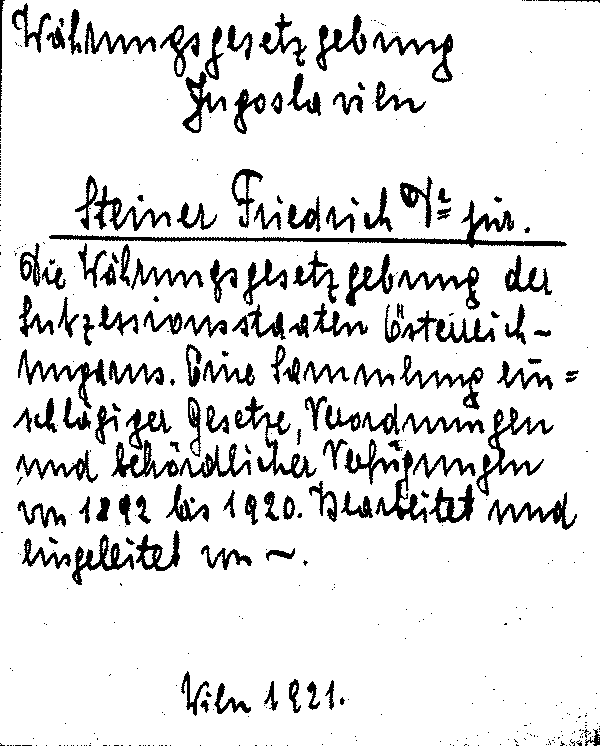 Währungsgesetzgebung
Jugoslavien
Steiner Friedrich Dr jur.
Die Währungsgesetzgebung der
Sukzessionsstaaten Österreich-
Ungarns. Eine Sammlung ein=
schlägiger Gesetze, Verordnungen
und behördlicher Verfügungen
von 1892 bis 1920. Bearbeitet und
eingeleitet von ~.
Wien 1921.